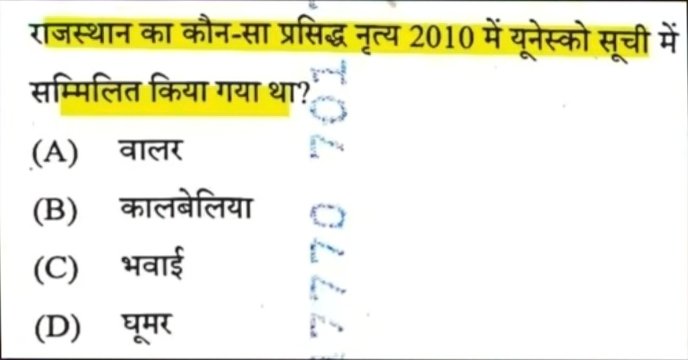 राजस्थान का कौन-सा प्रसिद्ध नृत्य 2010 में यूनेस्को सूची में
सम्मिलित किया गया था?
(A) वालर
(B) कालबेलिया
(C) भवाई
(D) घूमर
7770 701